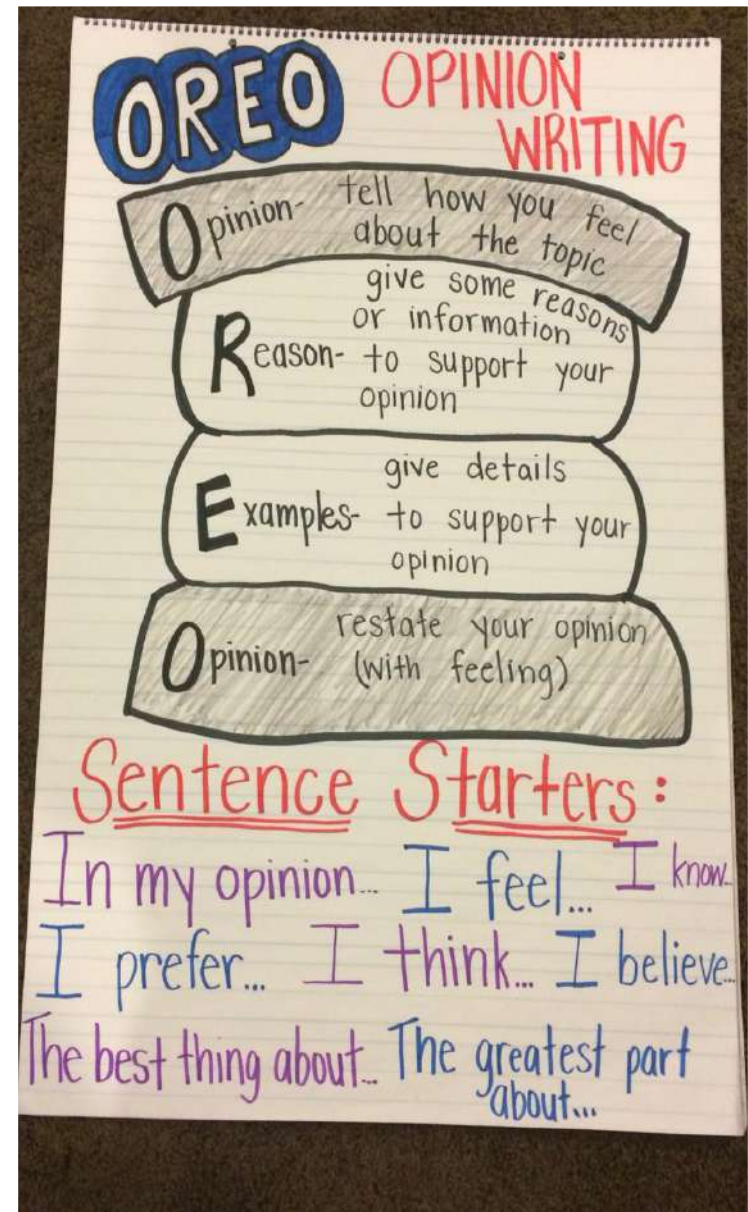 OREO OPINION
WRITING
Opinion- tell how you feel
about the topic
give some reasons
or information
Reason- to support your
opinion
give details
Examples- to support your
opinion
Opinion- restate your opinion
(with feeling)
Sentence Starters:
In my opinion... I feel... I know...
I prefer... I think... I believe...
The best thing about... The greatest part
about...